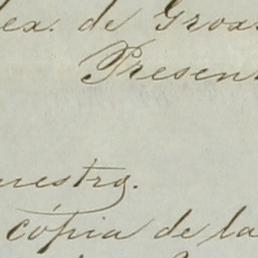 ex. de Grox
Presen
uestra.
cópia de la